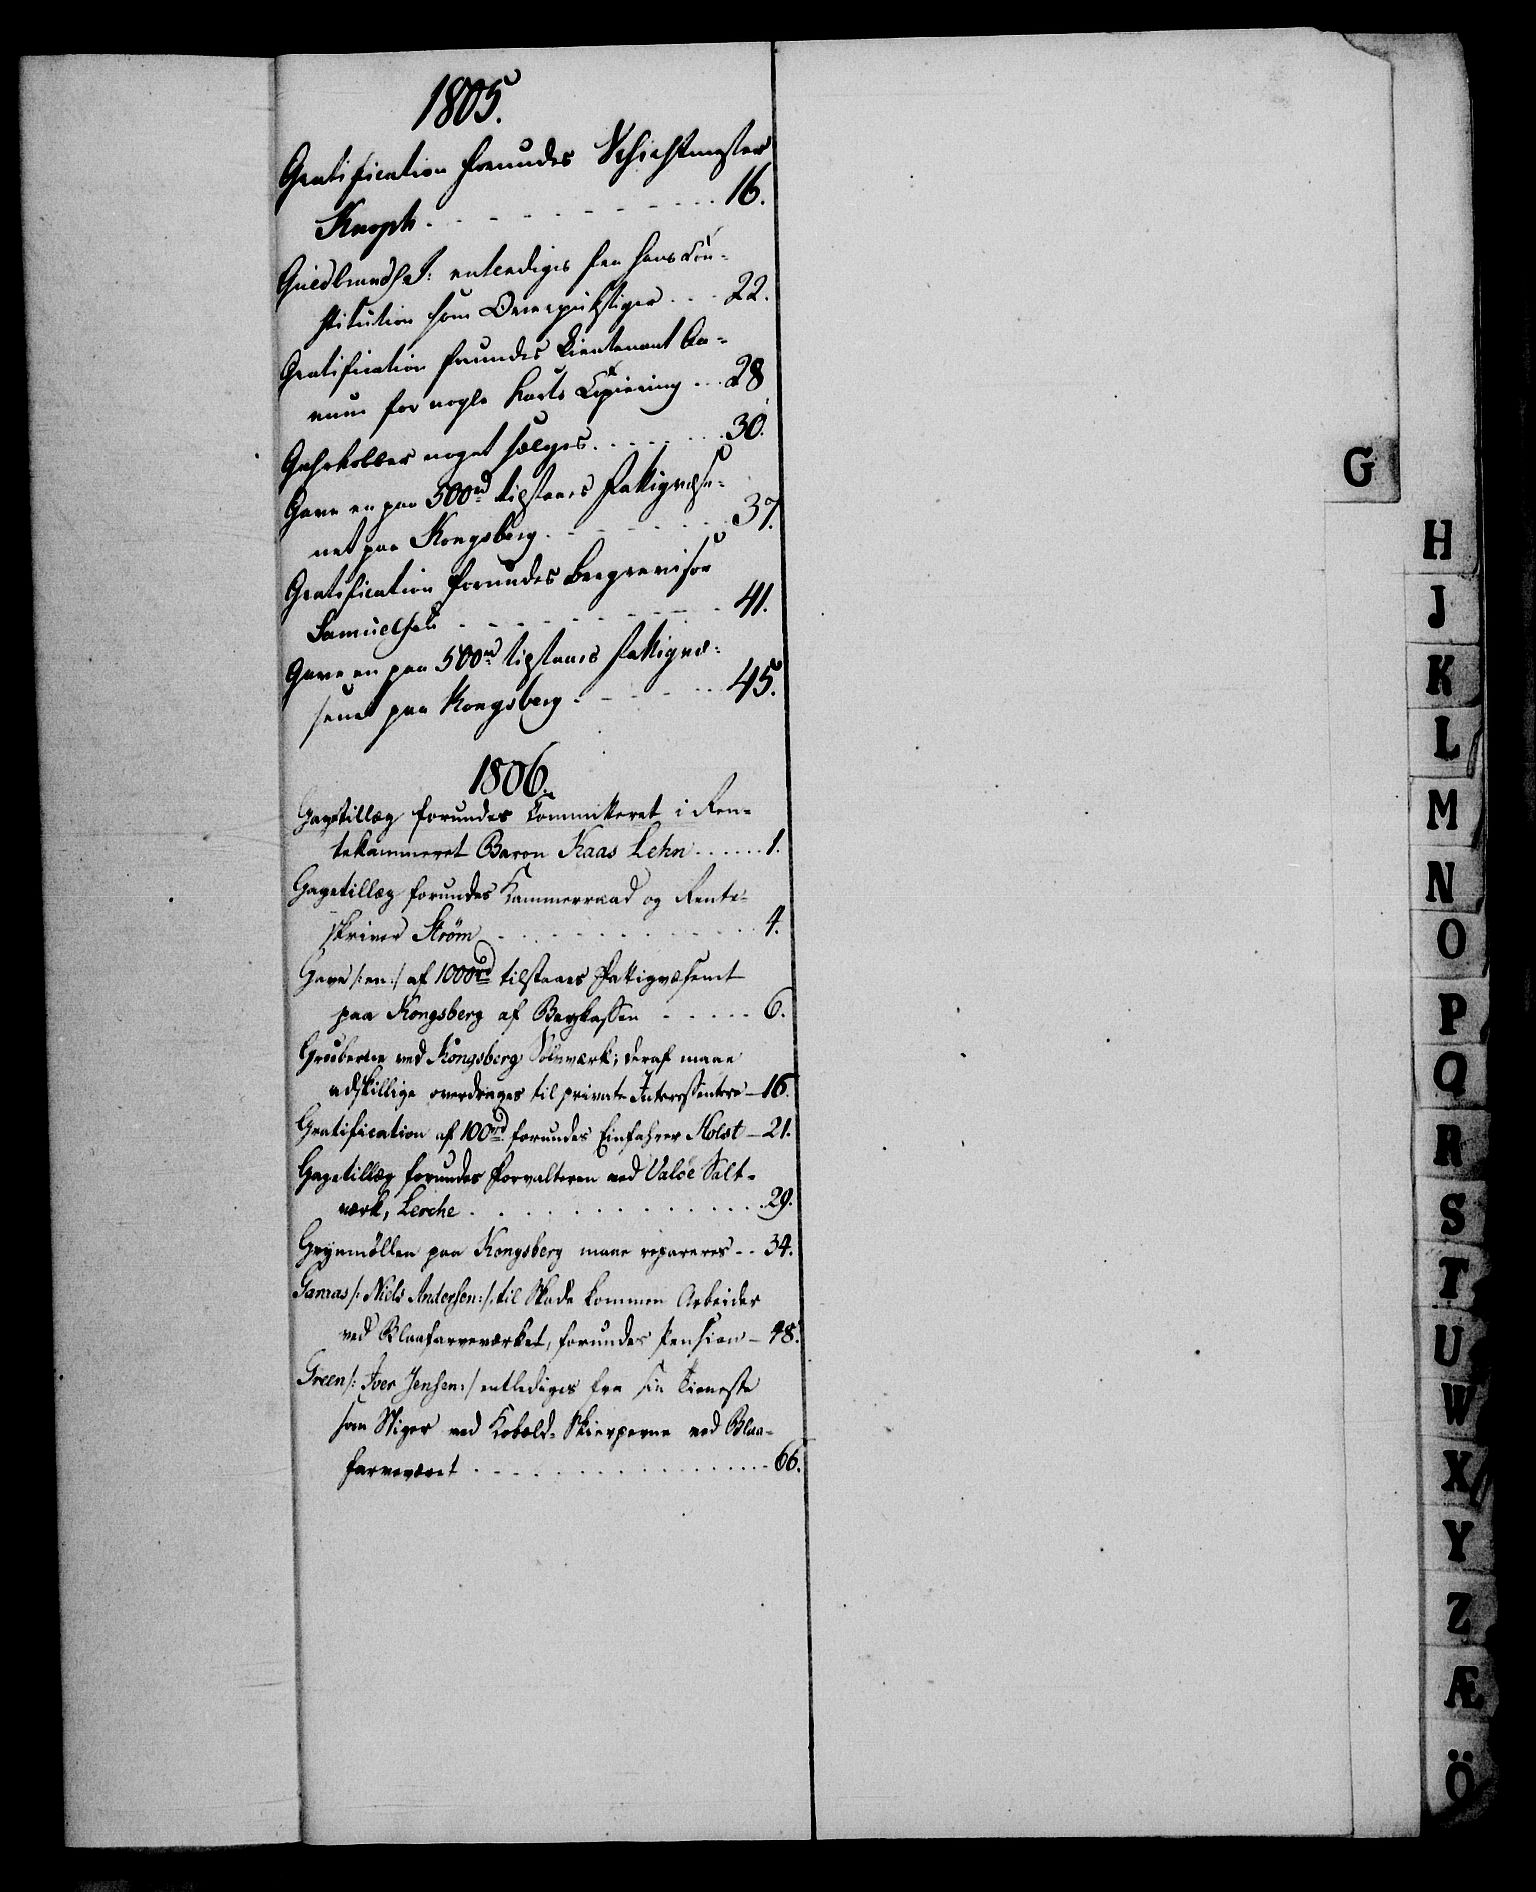 1805.
Gratification forundes Schichtmester
Knoph. - - - - - - - - - 16.
entlediges fra hans Con-
stitution som Overopsigtiger - - - 22.
Gratification forundes Lieutenant
for nogle Karts Copiering - - - 28
Gahrkobber noget sælges. - - - - - 30.
Gave en paa 500rd tilstaaes Fattigvæse-
net paa Kongsberg. - - - - - - 37.
Gratification forundes Bergrevisor
Samuelsen - - - - - - - - 41.
Gave en paa 500rd tilstaaes Fattigvæ-
senet paa Kongsberg. - - - - - 45.
1806.
Gagetillæg forundes Committeret i Ren-
tekammeret Baron Kaas Lehn . . . . . . 1.
Gagetillæg forundes Kammerraad og Rente-
skriver Strøm - - - - - - - - - 4.
Gave /:en:/ af 1000rd tilstaaes Fattigvæsenet
paa Kongsberg af Bergkassen - - - - - 6.
Gruberne ved Kongsberg Sølvværk; deraf maae
adskillige overdrages til private Interessentere - 16.
Gratification af 100rd forundes Einfahrer Holst - 21.
Gagetillæg forundes Forvalteren ved Valöe Salt-
værk, Lerche . . . . . . . . . . . 29.
Grynmöllen paa Kongsberg maae repareres - - 34.
Ganras /: Niels Andersen:/, til Skade kommen Arbeider
ved Blaafarveværket, forundes Pension - 48.
Green /: Iver Jensen:/ entlediges fra sin Tieneste
som Stiger ved Kobold-Skierperne ved Blaa-
farveværet - - - - - - - - - - 66.
G
H
J
K
L
M
N
O
P
Q
R
S
T
U
W
X
Y
Z
Æ
Ö